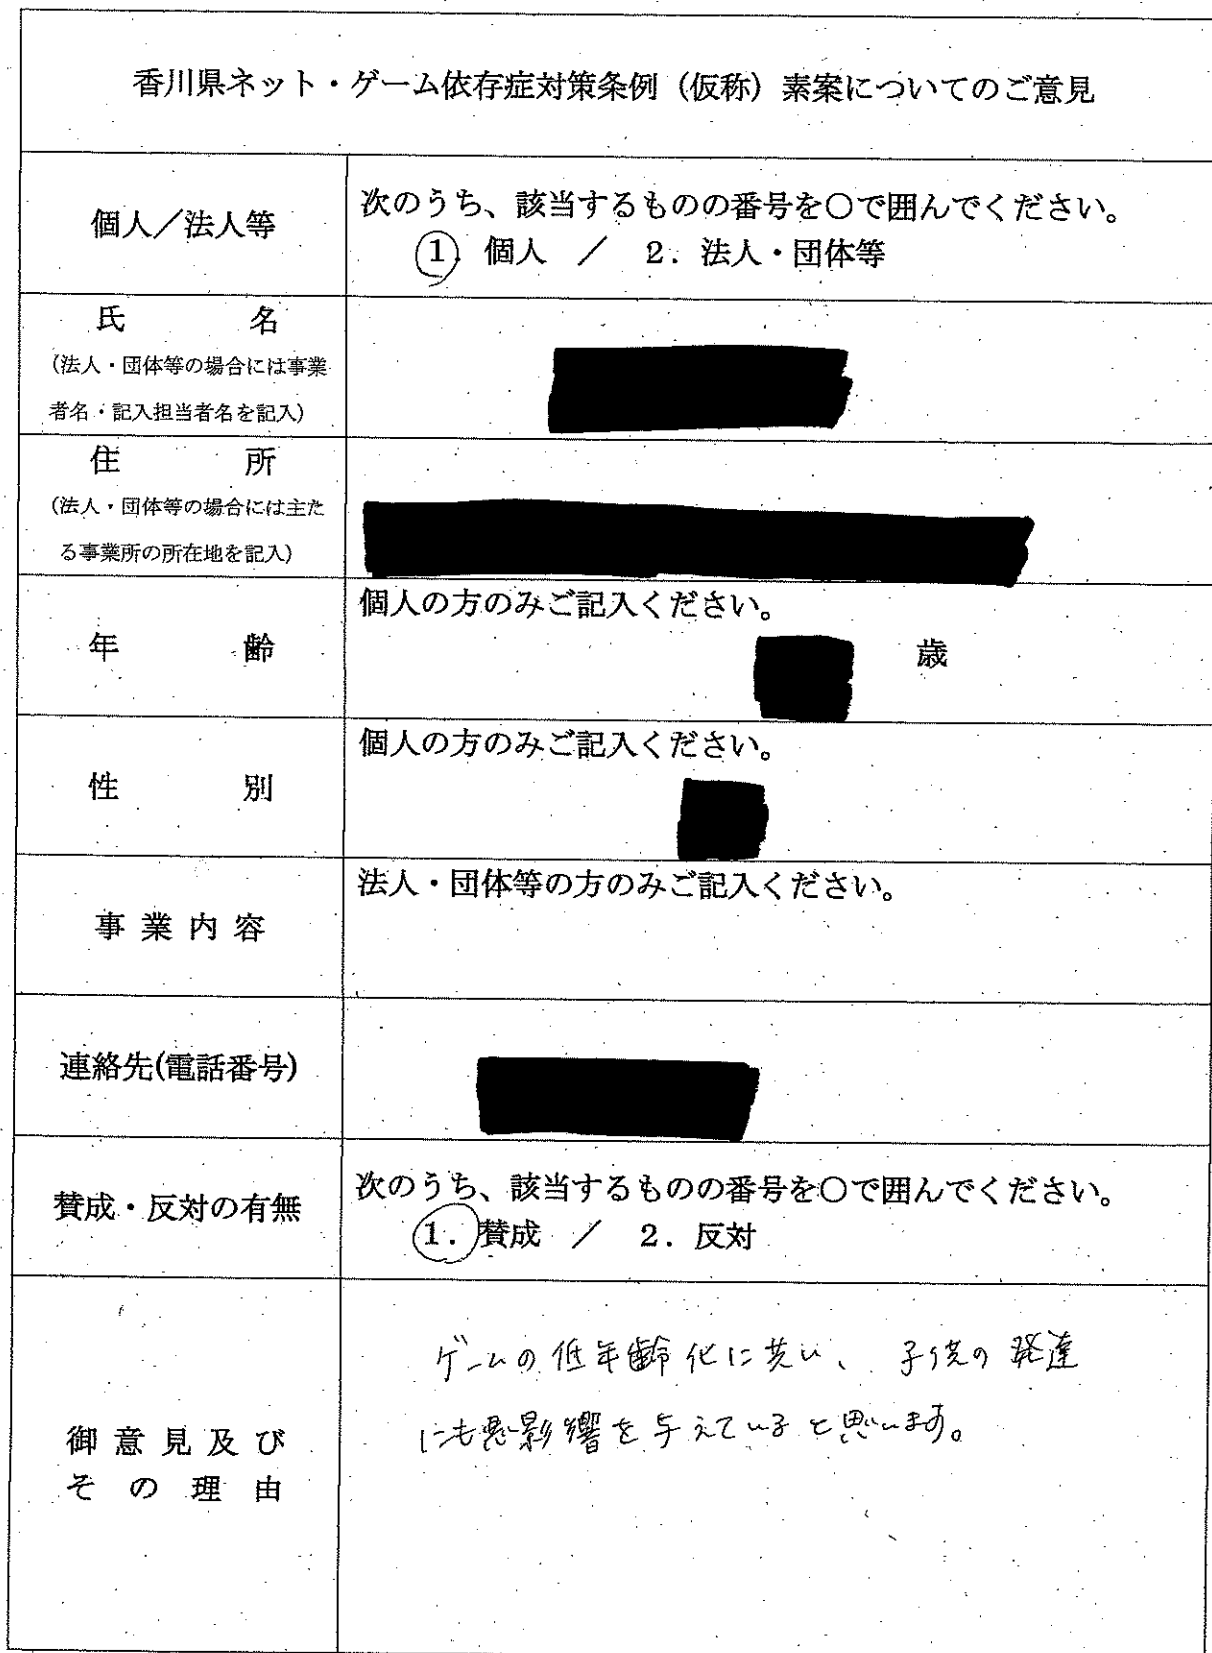 香川県ネット・ゲーム依存症対策条例（仮称）素案についてのご意見
個人／法人等
次のうち、該当するものの番号を○で囲んでください。
1. 個人 ／ 2. 法人・団体等
氏 名
(法人・団体等の場合には事業
者名・記入担当者名を記入)
住 所
(法人・団体等の場合には主た
る事業所の所在地を記入)
年 齢
個人の方のみご記入ください。
歳
性 別
個人の方のみご記入ください。
事業内容
法人・団体等の方のみご記入ください。
連絡先(電話番号)
賛成・反対の有無
次のうち、該当するものの番号を○で囲んでください。
1. 賛成 ／ 2. 反対
御意見及び
その理由
ゲームの低年齢化に 、子供の発達
にも悪影響を与えていると思います。